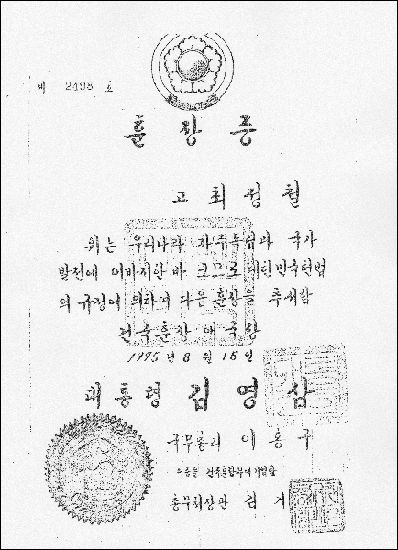 제 2498 호
훈장증
고 최성철
위는 우리나라 자주독립과 국가
발전에 이바지한 바 크므로 대한민국헌법
의 규정에 의하여 다음 훈장을 추서함
건국훈장 애국장
1995년 8월 15일
대통령 김영삼
국무총리 이홍구
이증을 건국훈장부에 기입함
총무처장관 김기